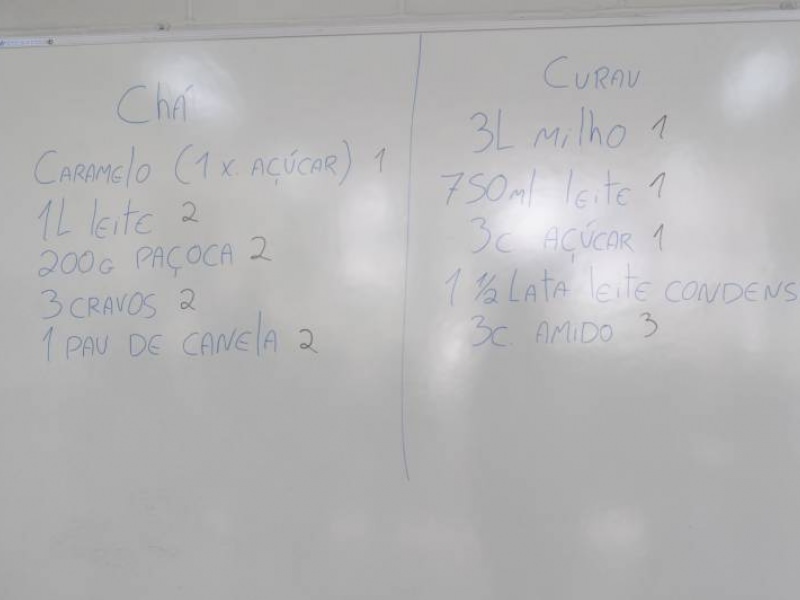 Chá
CARAMELO (1 X. AÇÚCAR) 1
1L LEITE 2
200G PAÇOCA 2
3 CRAVOS 2
1 PAU DE CANELA 2
CURAU
3L MILHO 1
750ml LEITE 1
3C AÇÚCAR 1
1 ½ LATA LEITE CONDENS
3C. AMIDO 3